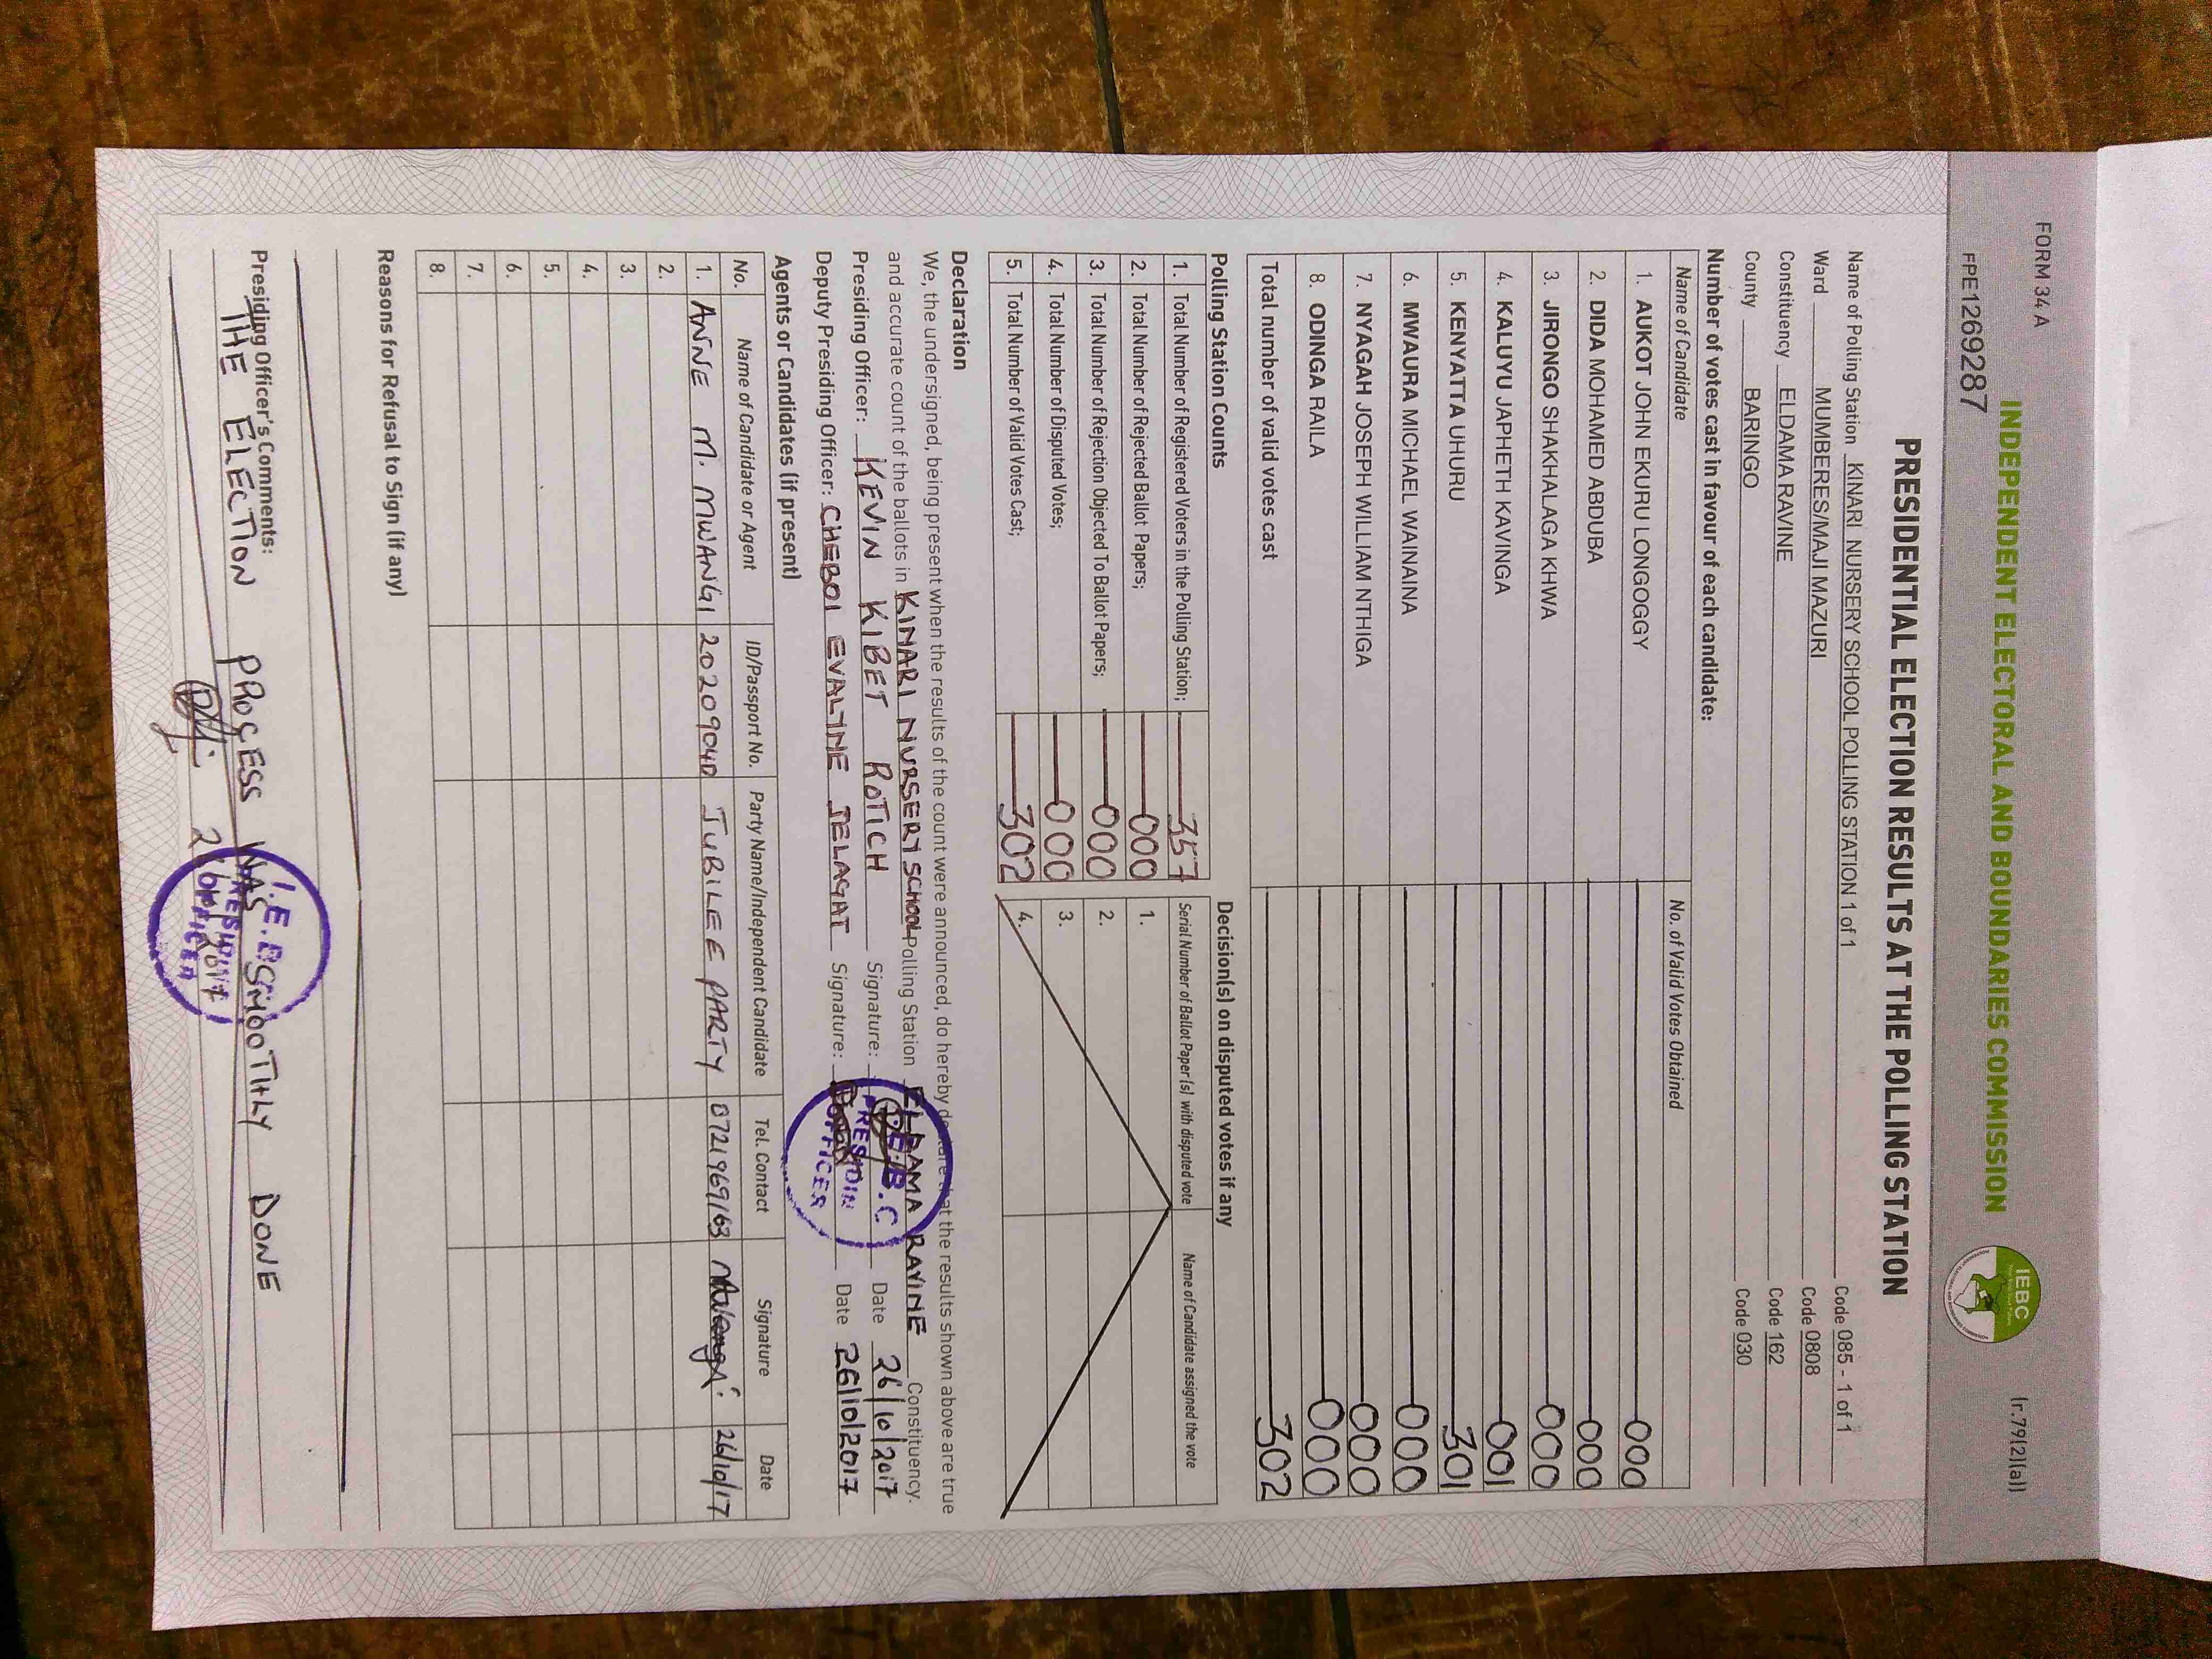 FORM 34 A
(r.79(2)(a))
INDEPENDENT ELECTORAL AND BOUNDARIES COMMISSION
IEBC
FPE1269287
PRESIDENTIAL ELECTION RESULTS AT THE POLLING STATION
Name of Polling Station KINARI NURSERY SCHOOL POLLING STATION 1 of 1 Code 085 - 1 of 1
Ward MUMBERES/MAJI MAZURI Code 0808
Constituency ELDAMA RAVINE Code 162
County BARINGO Code 030
Number of votes cast in favour of each candidate:
Name of Candidate No. of Valid Votes Obtained
1. AUKOT JOHN EKURU LONGOGGY 000
2. DIDA MOHAMED ABDUBA 000
3. JIRONGO SHAKHALAGA KHWA 000
4. KALUYU JAPHETH KAVINGA 001
5. KENYATTA UHURU 301
6. MWAURA MICHAEL WAINAINA 000
7. NYAGAH JOSEPH WILLIAM NTHIGA 000
8. ODINGA RAILA 000
Total number of valid votes cast 302
Polling Station Counts
1. Total Number of Registered Voters in the Polling Station; 357
2. Total Number of Rejected Ballot Papers; 000
3. Total Number of Rejection Objected To Ballot Papers; 000
4. Total Number of Disputed Votes; 000
5. Total Number of Valid Votes Cast; 302
Decision(s) on disputed votes if any
Serial Number of Ballot Paper (s) with disputed vote Name of Candidate assigned the vote
1.
2.
3.
4.
Declaration
We, the undersigned, being present when the results of the count were announced, do hereby declare that the results shown above are true
and accurate count of the ballots in KINARI NURSERY SCHOOL Polling Station ELDAMA RAVINE Constituency.
Presiding Officer: KEVIN KIBET ROTICH Signature: Date 26/10/2017
Deputy Presiding Officer: CHEBOI EVALINE JELAGAT Signature: Date 26/10/2017
I.E.B.C
PRESIDIN
OFFICER
Agents or Candidates (if present)
No. Name of Candidate or Agent ID/Passport No. Party Name/Independent Candidate Tel. Contact Signature Date
1. ANNE M. MWANGI 20209040 JUBILEE PARTY 0721969163 26/10/17
2.
3.
4.
5.
6.
7.
8.
Reasons for Refusal to Sign (if any)
Presiding Officer's Comments:
THE ELECTION PROCESS WAS SMOOTHLY DONE
I.E.B.C
PRESIDIN
OFFICER